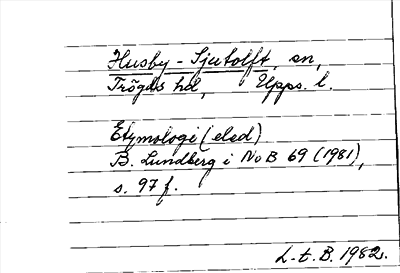 Husby-Sjutolft, sn,
Trögds hd, Upps. l.
Etymologi (eled)
B. Lundberg i NoB 69 (1981),
s. 97 f.
L.t.B. 1982.